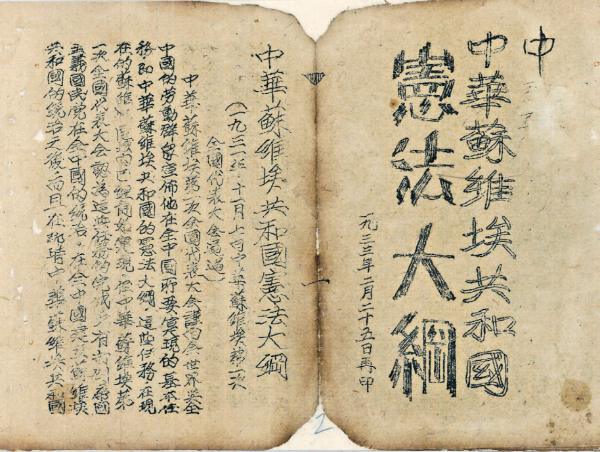 中
中華蘇維埃共和國
憲法大綱
一九三三年二月二十五日再印
中華蘇維埃共和國憲法大綱
（一九三一年十一月七日中華蘇維埃第一次
全國代表大會通過）
中華蘇維埃第一次全國代表大會謹向全世界與全
中國的勞動群眾宣佈他在全中國所要實現的基本任
務即中華蘇維埃共和國的憲法大綱，這些任務在現
在的蘇維埃區域內已經開始實現但中華蘇維埃第
一次全國代表大會認為這些任務的完成只有在打倒帝國
主義國民黨在全中國的統治，在全中國建立蘇維埃
共和國的統治之後而且在那時中華蘇維埃共和國